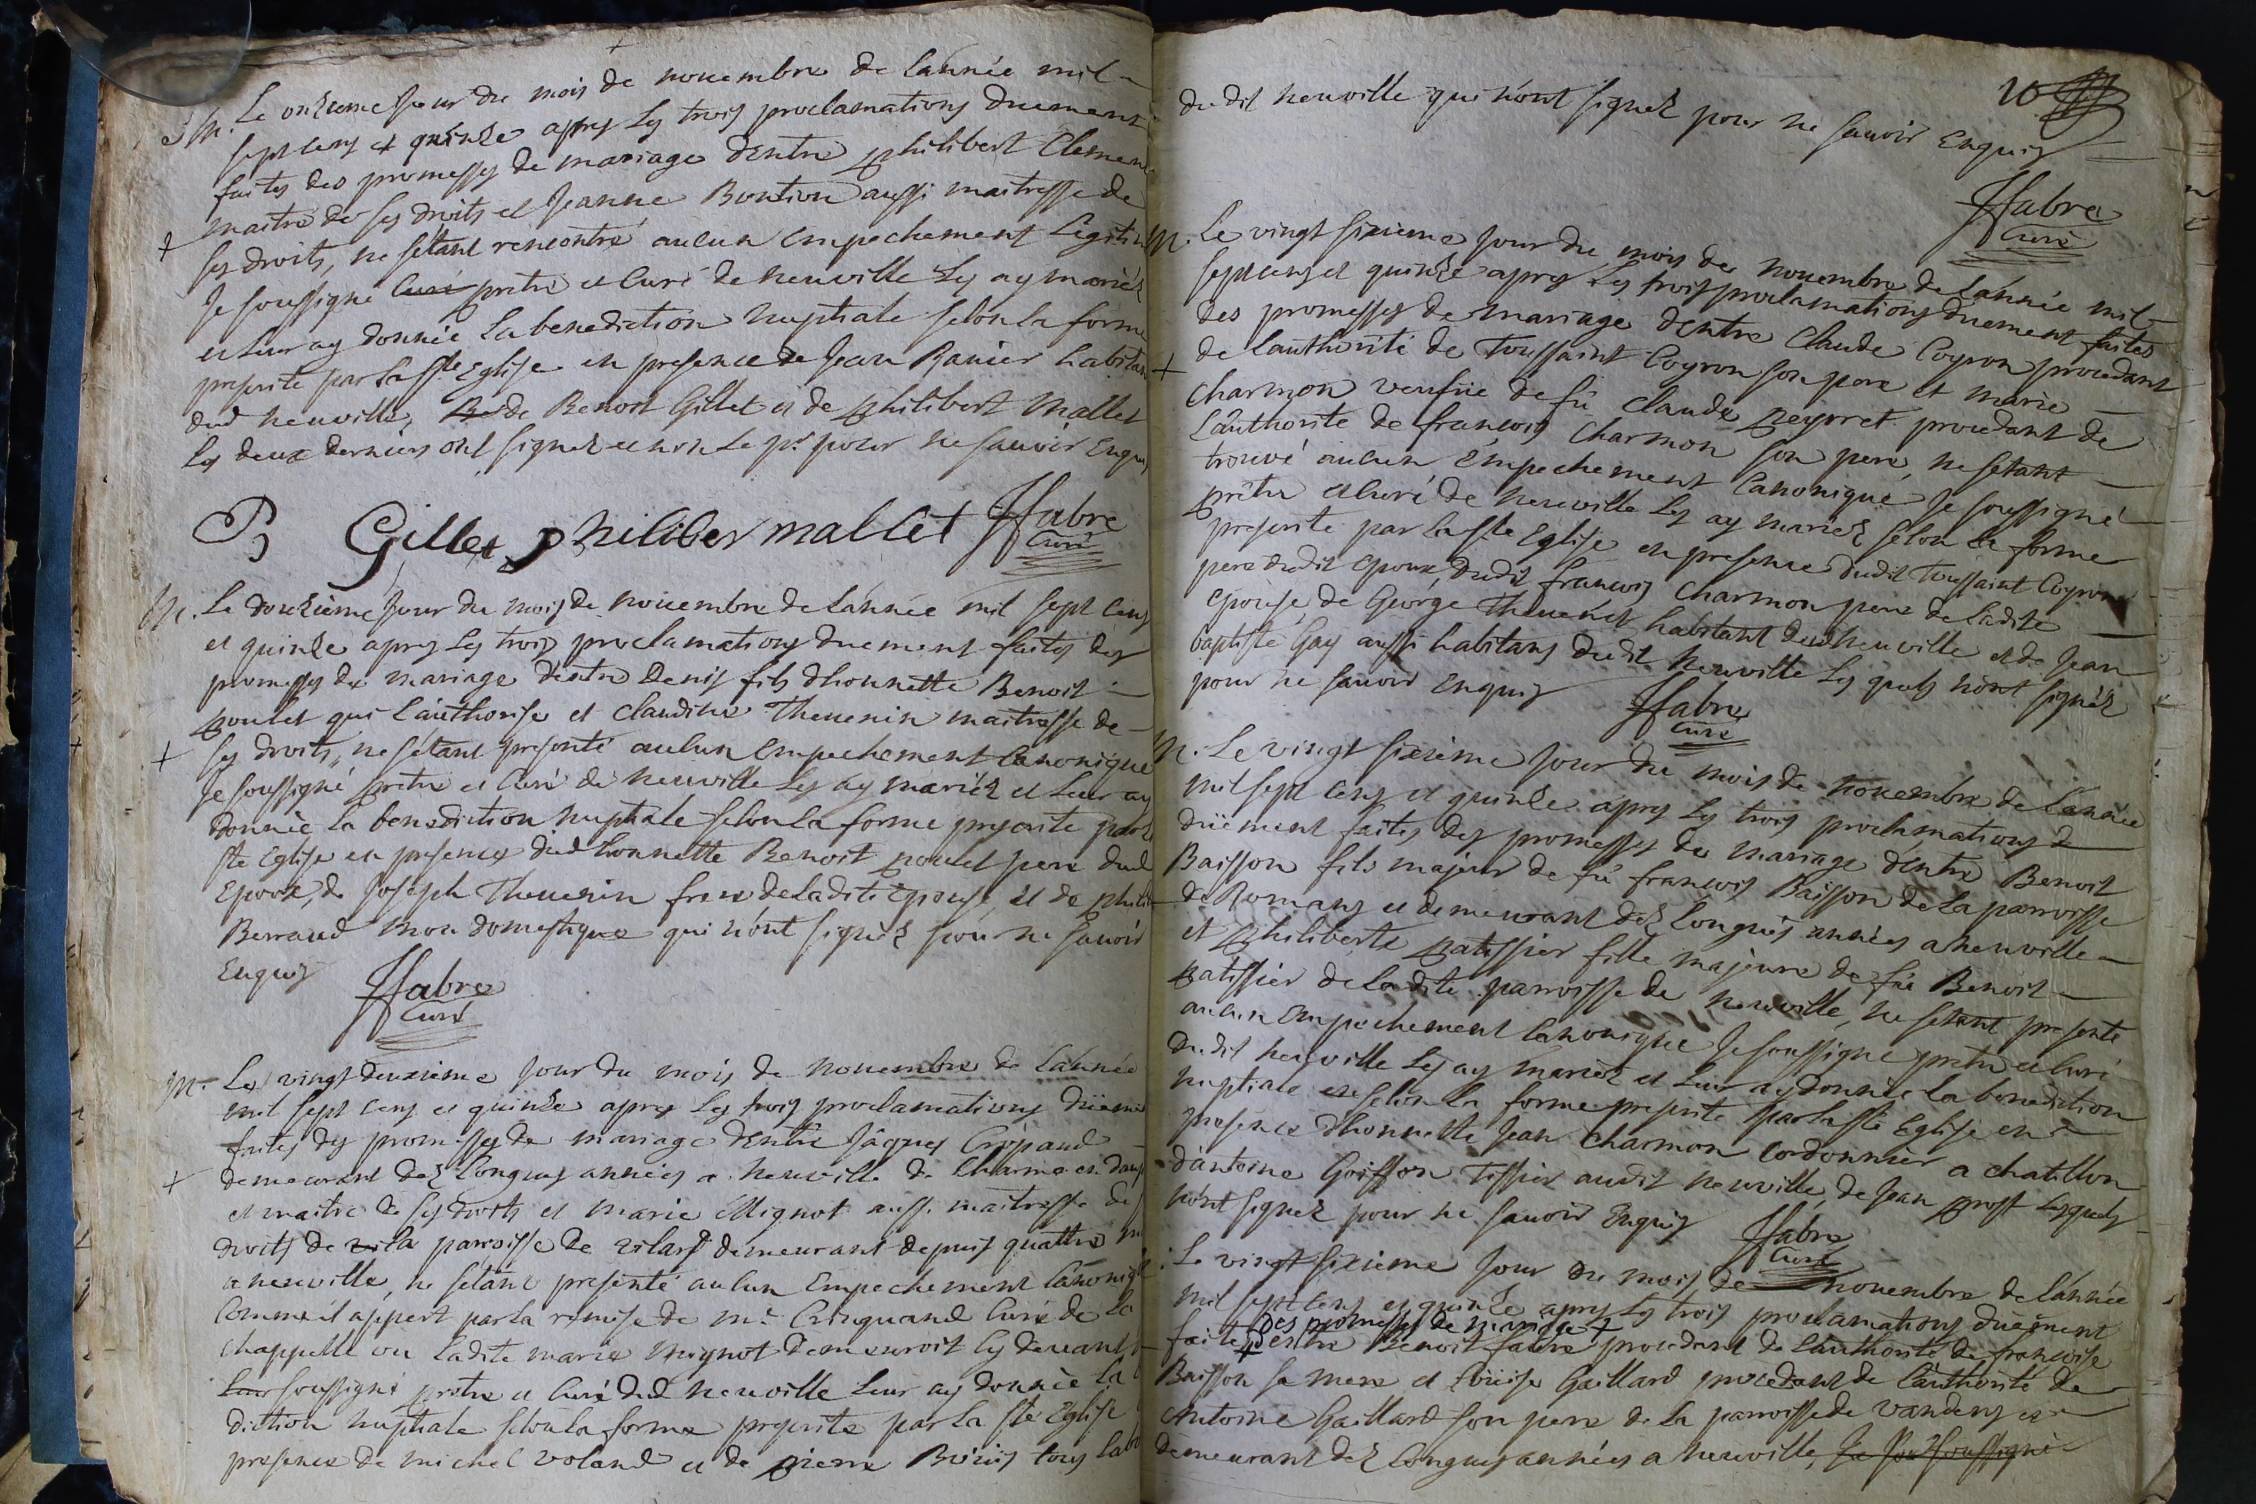 M. Le onzieme Jour du mois de nouembre de lannée mil
sept cens et quinze apres les trois proclamations duement
faites des promesses de mariage dentre philibert Clemen
maitre de ses droits et Jeanne Boution aussi maitresse de
ses droits, ne sétant rencontré aucun Empechement Legitim
Je soussigné Curé prétre et Curé de neuville Les ay mariéz
et leur ay donnée La benediction nuptiale selon la forme
prescrite par la ste Eglise en presence de Jean Ranier habitan
dud neuville, de Benoit Gillet et de philibert Mallet
Les deux derniers ont signez et non Le pr pour ne sauoir Enquis
Gillet philiber mallet ffabre
Curé
M. Le douzième Jour du mois de nouembre de lánnée mil sept cens
et quinze apres les trois proclamations duement faites des
promesses de mariage déntre Denis fils dhonnette Benoit
poulet qui láuthorise et claudine Theuenin maitresse de
ses droits, ne sétant presenté aucun Empechement Canonique
Je soussigné prétre et Curé de neuville Les ay mariéz et Leur ay
donnée la benediction nuptiale selon la forme prescrite par l
ste Eglise en presence dud honnette Benoit poulet pere dud
Epoux, de Joseph Theuenin frere de la dite Epouse, et de phili
Berraud mon domestique qui nónt signéz pour ne sauoir
Enquis
ffabre
Curé
M. Le vingt deuxieme Jour du mois de nouembre de lánnée
mil sept cens et quinze apres les trois proclamations düeme
faites des promesses de mariage déntre Jâques Crépaud
demeurant dez longues années a neuville de Charme en
et maitre de ses droits et marie Mignot aussi maitresse de s
droits de la parroisse de vilars demeurant depuis quattre
a neuville, ne sétant presenté aucun Empechement Canoniq
Comme il appert par la remise de mr. Cinquand Curé de la
chappelle ou ladite marie Mignot demeuroit cy deuant
soussigné prétre et Curé dud neuville Leur ay donnée La
diction nuptiale selon la forme prescrite par la ste Eglise
presence de michel voland et de pierre tous
10
du dit neuville qui nónt signez pour ne sauoir Enquis
ffabre
Curé
M. Le vingt sixieme Jour du mois de nouembre de lánnée mil
sept cens et quinze apres les trois proclamations duement faites
des promesses de mariage déntre Claude Coyron procedant
de lauthorité de Toussaint Coyron son pere et marie
Charmon veufue de fû claude peysret procedant de
láuthorité de francois Charmon son pere, ne sétant
trouvé aucun Empechement Canonique Je soussigné
prétre et Curé de neuville Les ay mariéz selon la forme
prescrite par la ste Eglise en presence dudit Toussaint Coyron
pere dudit epoux, dudit francois Charmon pere de ladite
Epouse, de George Theuenet habitant dud neuville et de Jean
baptiste Gay aussi habitans dudit neuville Les quels nónt signéz
pour ne sauoir Enquis
ffabre
Curé
M. Le vingt sixieme Jour du mois de nouembre de lánnée
mil sept cens et quinze apres les trois proclamations
düement faites des promesses de mariage déntre Benoit
Baisson fils majeur de fû francois Baisson de la parroisse
de Romans et demeurant dez longues années a neuville
et philiberte patissier fille majeure de fû Benoit
patissier de la dite parroisse de neuville, ne sétant presenté
aucun Empechement Canonique Je soussigné prétre et Curé
dudit neuville Les ay mariéz et Leur ay donnée la benediction
nuptiale selon la forme prescrite par la ste Eglise en
presence dhonnette Jean Charmon Cordonnier a chatillon
dántoine Goiffon Tissier audit neuville, de Jean prost Lesquels
nónt signéz pour ne sauoir Enquis
ffabre
Curé
Le vingt sixieme Jour du mois de nouembre de lánnée
mil sept cens et quinze apres les trois proclamations düement
des promesses de mariage +
faites + déntre Benoit fabre procedant de láuthorité de francoise
Baisson sa mere et Loüise Gaillard procedant de láuthorité de
Antoine Gaillard son pere de la parroisse de vandens et
demeurant dez longues années a neuville, Je soussigné